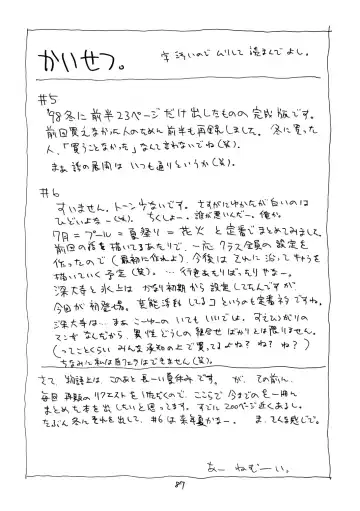 かいせつ。
字汚いのでムリして読まんでよし。
#5
'98冬に前半23ページだけ出したものの完成版です。
前回買えなかった人のために前半も再録しました。冬に買った
人、「買うことなかった」なんて言わないでね(笑)。
まぁ話の展開はいつも通りというか(笑)。
#6
すいません、トーン少ないです。さすがにゆかたが白いのは
ひどいよなー(笑)。ちくしょー、誰が悪いんだー。俺か。
7月=プール=夏祭り=花火と定番でまとめてみました。
前回の話を描いてるあたりで、一応クラス全員の設定を
作ったので(最初に作れよ)今後はそれに沿ってキャラを
描いていく予定(笑)。…行きあたりばったりやなー。
深大寺と氷上はかなり初期から設定してたんですが、
今回が初登場。芸能活動してるコというのも定番ネタですね。
深大寺は…まぁこーゆーのいてもいいでは。
マンガなんだから、異性どうしの組合せばかりとは限りません。
(ってことくらいみんな承知の上で買ってるよね?ね?ね?)
ちなみに私は自己フォローはできません(笑)。
さて、物語上は、このあと長ーい夏休みです。が、その前に、
毎回再録のリクエストをいただくので、ここらで今までのを一冊に
まとめた本を出したいと思ってます。すでに200ページ近くあるし。
たぶん冬にそれを出して、#6は来年夏かなー。ま、そんな感じで。
あー ねむーい。
87